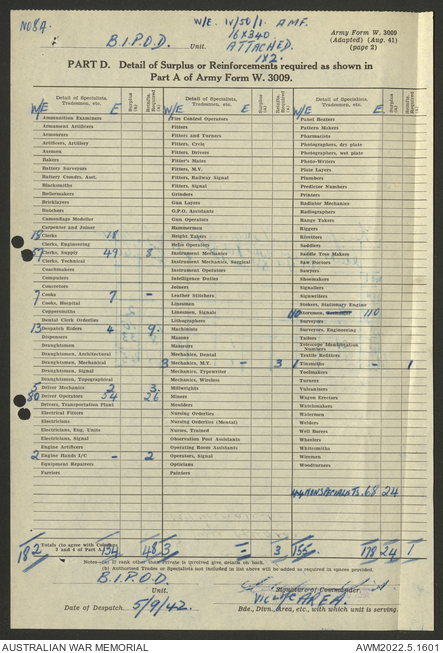 NO8A.
W/E. IV/50/1. A.M.F.
16X340
Army Form W. 3009
(Adapted) (Aug. 41)
(page 2)
B.I.P.O.D. Unit.
ATTACHED.
1X2.
PART D. Detail of Surplus or Reinforcements required as shown in
Part A of Army Form W. 3009.
Detail of Specialists, Tradesmen, etc. Surplus (a) Detail of Specialists, Tradesmen, etc. Surplus (a) Detail of Specialists, Tradesmen, etc. Surplus (a)
W/E E W/E E W/E E
Ammunition Examiners
Armament Artificers
Armourers
Artificers, Artillery
Axemen
Bakers
Battery Surveyors
Battery Comdrs. Asst.
Blacksmiths
Boilermakers
Bricklayers
Butchers
Camouflage Modeller
Carpenter and Joiner
18 Clerks 18
Clerks, Engineering
57 Clerks, Supply 49 8
Clerks, Technical
Coachmakers
Computers
Concretors
7 Cooks 7 -
Cooks, Hospital
Coppersmiths
Dental Clerk Orderlies
13 Despatch Riders 4 9.
Dispensers
Draughtsmen
Draughtsmen, Architectural
Draughtsmen, Mechanical
Draughtsmen, Signal
Draughtsmen, Topographical
5 Driver Mechanics 2 3.
80 Driver Operators 54 26
Drivers, Transportation Plant
Electrical Fitters
Electricians
Electricians, Eng. Units
Electricians, Signal
Engine Artificers
2 Engine Hands I/C - 2
Equipment Repairers
Farriers
Fire Control Operators
Fitters
Fitters and Turners
Fitters, Cycle
Fitters, Drivers
Fitter's Mates
Fitters, M.V.
Fitters, Railway Signal
Fitters, Signal
Grinders
Gun Layers
G.P.O. Assistants
Gun Operators
Hammermen
Height Takers
Helio Operators
Instrument Mechanics
Instrument Mechanics, Surgical
Instrument Operators
Intelligence Duties
Joiners
Leather Stitchers
Linesmen
Linesmen, Signals
Lithographers
Machinists
Masons
Masseurs
Mechanics, Dental
3 Mechanics, M.V. - 3
Mechanics, Typewriter
Mechanics, Wireless
Millwrights
Miners
Moulders
Nursing Orderlies
Nursing Orderlies (Mental)
Nurses, Trained
Observation Post Assistants
Operating Room Assistants
Operators, Signal
Opticians
Painters
Panel Beaters
Pattern Makers
Pharmacists
Photographers, dry plate
Photographers, wet plate
Photo-Writers
Plate Layers
Plumbers
Predictor Numbers
Printers
Radiator Mechanics
Radiographers
Range Takers
Riggers
Riveters
Saddlers
Saddle Tree Makers
Saw Doctors
Sawyers
Shoemakers
Signallers
Signwriters
Stokers, Stationary Engine
110 Storemen, 110
Surveyors
Surveyors, Engineering
Tailors
Telescope Identification Numbers
Textile Refitters
1 Tinsmiths - 1
Toolmakers
Turners
Vulcanizers
Wagon Erectors
Watchmakers
Watermen
Welders
Well Borers
Wheelers
Whitesmiths
Wiremen
Woodturners
44 NON SPECIALISTS. 68 24
182 Totals (to agree with Columns 3 and 4 of Part A) 134 48 3 - 3 155 178 24 1
Notes—(a) If rank other than Private is involved give details on back.
(b) Authorised Trades or Specialists not included in list above will be added as required in spaces provided.
B.I.P.O.D.
Unit. Signature of Commander,
VIC L of C AREA.
Date of Despatch 5/9/42. Bde., Divn., Area, etc., with which unit is serving.
AUSTRALIAN WAR MEMORIAL AWM2022.5.1601